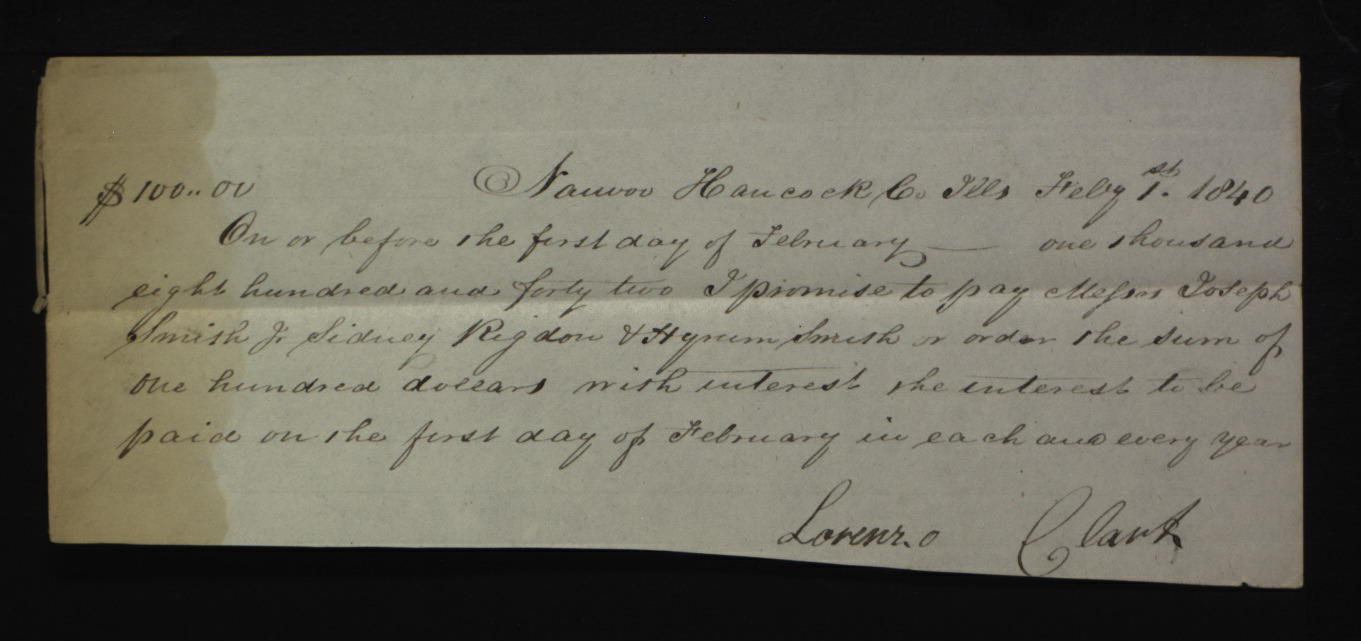 $100.. 00 @ Nauvoo Hancock Co Ills Feby 1st. 1840
On or before the first day of February — one thousand
eight hundred and forty two I promise to pay Messrs Joseph
Smith Jr Sidney Rigdon & Hyrum Smith or order the sum of
one hundred dollars with interest the interest to be
paid on the first day of February in each and every year
Lorenzo Clark